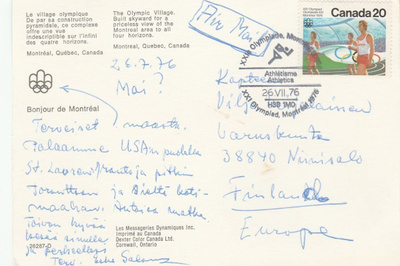 Le village olympique
De par sa construction
pyramidale, ce complexe
offre une vue
indescriptible sur l'infini
des quatre horizons.
Montréal, Québec, Canada
The Olympic Village.
Built skyward for a
priceless view of the
Montreal area to all
four horizons.
Montreal, Quebec, Canada
Air Mail
Canada 20
XXIe Olympiade, Montréal
Athlétisme
Athletics
26.VII.76
H3B 1M0
XXI Olympiad, Montréal 1976
28.7.76
Moi!
Bonjour de Montréal
Terveiset maasta.
Palaamme USA:n puolelta
St. Lawrence
Torontoon ja sieltä koti-
maahan. matka
Toivon hyvää
kesää sinulle
ja perheellesi
Terv.
Kapteeni
38840 Niinisalo
Finland
Europe
Les Messageries Dynamiques Inc.
Imprimé au Canada
Dexter Color Canada Ltd.
Cornwall, Ontario
26287-D